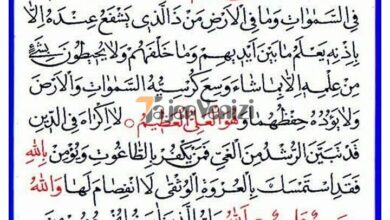 فِي السَّمٰوَاتِ وَمَا فِي الْاَرْضِ مَنْ ذَا الَّذِي يَشْفَعُ عِنْدَهُ اِلَّا
بِاِذْنِهِ يَعْلَمُ مَا بَيْنَ اَيْدِيهِمْ وَمَا خَلْفَهُمْ وَلَا يُحِيطُونَ بِشَيْءٍ
مِنْ عِلْمِهِ اِلَّا بِمَا شَاءَ وَسِعَ كُرْسِيُّهُ السَّمٰوَاتِ وَالْاَرْضَ
وَلَا يَؤُدُهُ حِفْظُهُمَا وَهُوَ الْعَلِيُّ الْعَظِيمُ ○ لَا اِكْرَاهَ فِي الدِّينِ
قَدْ تَبَيَّنَ الرُّشْدُ مِنَ الْغَيِّ فَمَنْ يَكْفُرْ بِالطَّاغُوتِ وَيُؤْمِنْ بِاللهِ
فَقَدِ اسْتَمْسَكَ بِالْعُرْوَةِ الْوُثْقٰى لَا انْفِصَامَ لَهَا وَاللهُ